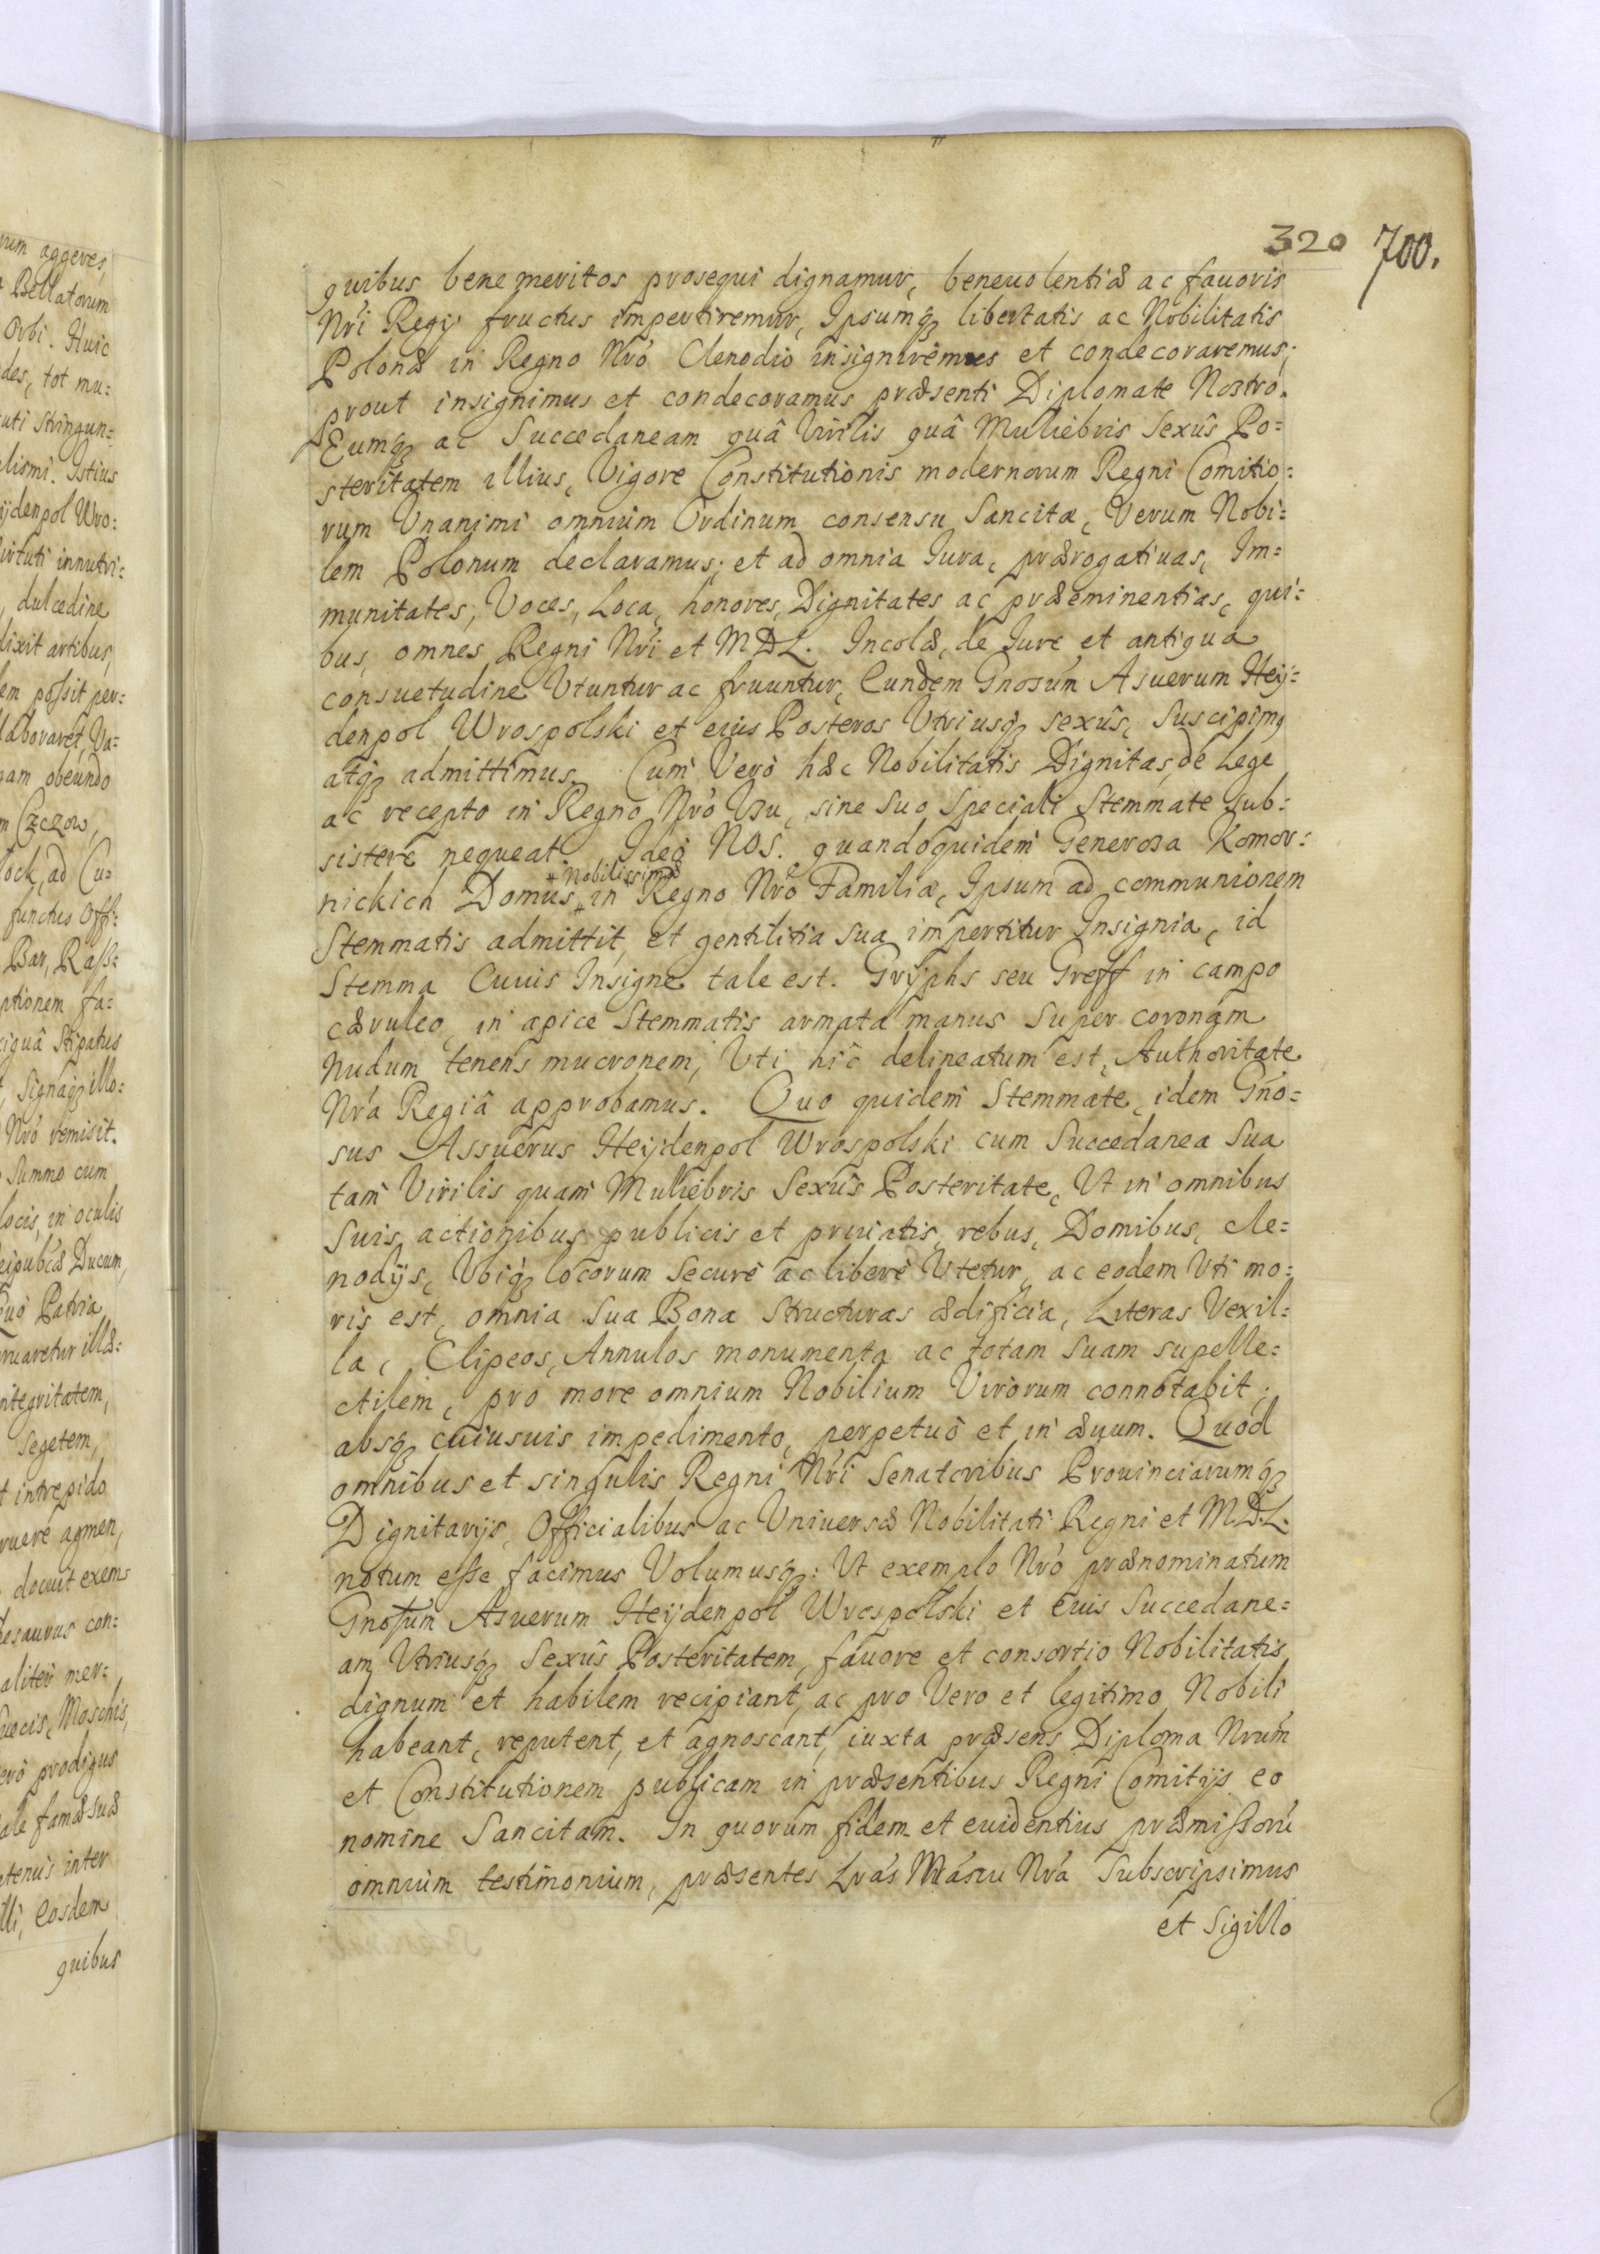 320 700.
quibus bene meritos prosequi dignamur, beneuolentiæ ac fauoris
Nrĩ Regij fructus impertiremur, Ipsumq₃ libertatis ac Nobilitatis
Polonæ in Regno Nrõ Clenodio insigniremus et condecoraremus;
prout insignimus et condecoramus præsenti Diplomate Nostro.
Eumq₃ ac Succedaneam quâ Virilis quâ Muliebris Sexûs Po=
steritatem illius, Vigore Constitutionis modernorum Regni Comitio=
rum Unanimi omnium Ordinum consensu Sancitæ, Verum Nobi=
lem Polonum declaramus; et ad omnia Iura, prærogatiuas, Im=
munitates, Voces, Loca, honores, Dignitates ac præeminentias, qui=
bus, omnes Regni Nrĩ et MDL. Incolæ, de Iure et antiqua
consuetudine Utuntur ac fruuntur, Eundem Gnosũm Asuerum Heÿ=
denpol Wrospolski et eius Posteros Utriusq₃ sexûs, Suscipimꝯ
atq₃ admittimus. Cum Verò hæc Nobilitatis Dignitas, de Lege
ac recepto in Regno Nrõ Usu, sine Suo Speciali Stemmate sub=
sistere nequeat. Ideò NOS. quandoquidem Generosa Komor=
+Nobilissimæ
nickich Domus + in Regno Nrõ Familiæ, Ipsum ad communionem
Stemmatis admittit, et gentilitia Sua impertitur Insignia, id
Stemma Cuius Insigne tale est. Grÿphs seu Greff in campo
cæruleo, in apice Stemmatis armata manus Super coronam
nudum tenens mucronem, Uti hîc delineatum est, Authoritate
Nrã Regiâ approbamus. Quo quidem Stemmate, idem Gnõ=
sus Assuerus Heÿdenpol Wrospolski cum Succedanea Sua
tam Virilis quam Muliebris Sexûs Posteritate, Ut in omnibus
Suis, actionibus publicis et priuatis, rebus, Domibus, cle=
nodijs, Ubiq₃ locorum Securè ac liberè Utetur, ac eodem Uti mo=
ris est, omnia Sua Bona Structuras ædificia, Literas Vexil=
la, Clipeos, Annulos monumenta ac totam Suam supelle=
ctilem, pro more omnium Nobilium Virorum connotabit,
absq₃ cuiusuis impedimento, perpetuò et in æuum. Quod
omnibus et singulis Regni Nrĩ Senatoribus Prouinciarumq₃
Dignitarijs, Officialibus ac Uniuersæ Nobilitati Regni et MDL.
notum esse facimus Volumusq₃: Ut exemplo Nrõ prænominatum
Gnosum Asuerum Heÿdenpol Wrospolski et eius Succedane=
am Utriusq₃ Sexûs Posteritatem, fauore et consortio Nobilitatis
dignum et habilem recipiant, ac pro Vero et legitimo Nobili
habeant, reputent, et agnoscant, iuxta præsens Diploma Nrũm
et Constitutionem publicam in præsentibus Regni Comitijs eo
nomine Sancitam. In quorum fidem et euidentius præmissorũ
omnium testimonium, præsentes Lrãs Mãnu Nrã Subscripsimus
et Sigillo
rum aggeres,
Bellatorum
Orbi. Huic
des, tot mu=
uti Stringun=
lismi. Istius
ijdenpol Wro:
irtuti innutri=
, dulcedine
lixit artibus,
em possit per=
laboraret, Ua=
gam obeundo
m Czczow,
lock, ad Cu=
functus Off=
Bar, Rass=
ptionem fa=
iquâ Stipatus
, Signaq₃ illo=
Nrõ remisit.
Summo cum
locis, in oculis
eipubcæ Ducum,
Quò Patria,
ntegritatem,
Segetem,
t intrepido
ruere agmen,
docuit exem=
hesaurus con=
aliter mer=
Moschis,
erò prodigus
ale famæ suæ
tenus inter
lli, Eosdem
quibus